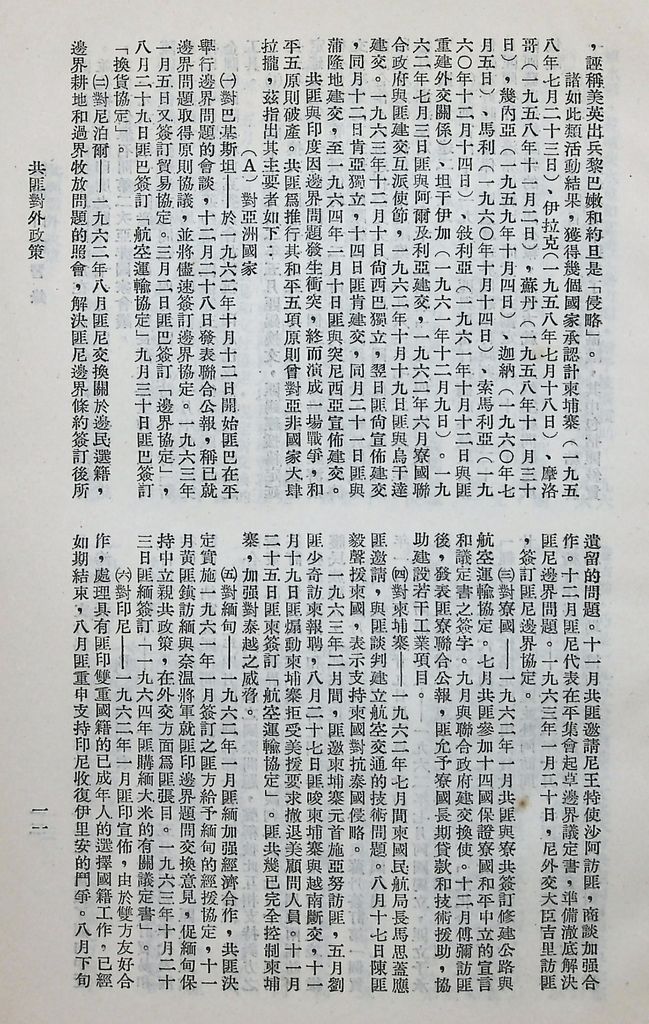 ，誣稱美英出兵黎巴嫩和約旦是「侵略」。
諸如此類活動結果，獲得幾個國家承認計柬埔寨（一九五
八年七月二十三日）、伊拉克（一九五八年七月十八日）、摩洛
哥（一九五八年十一月二日），蘇丹（一九五八年十一月三十
日），幾內亞（一九五九年十月四日）、迦納（一九六〇年七
月五日）、馬利（一九六〇年十月十四日）、索馬利亞（一九
六〇年十二月十四日）、敍利亞（一九六一年十月十二日與匪
重建外交關係）、坦干伊加（一九六一年十二月九日）。一九
六二年七月三日匪與阿爾及利亞建交，一九六二年六月寮國聯
合政府與匪建交互派使節，一九六二年十月十九日匪與烏干達
建交。一九六三年十二月十日尙西巴獨立，翌日匪尙宣佈建交
，同月十二日肯亞獨立，十四日匪肯建交，同月二十一日匪與
蒲隆地建交，至一九六四年一月十日匪與突尼西亞宣佈建交。
共匪與印度因邊界問題發生衝突，終而演成一場戰爭，和
平五原則破產。共匪爲推行其和平五項原則曾對亞非國家大肆
拉攏，茲指出其主要者如下：
（A）對亞洲國家
㈠對巴基斯坦——於一九六二年十月十二日開始匪巴在平
舉行邊界問題的會談，十二月二十八日發表聯合公報，稱已就
邊界問題取得原則協議，並將儘速簽訂邊界協定。一九六三年
一月五日又簽訂貿易協定。三月二日匪巴簽訂「邊界協定」，
八月二十九日匪巴簽訂「航空運輸協定」九月三十日匪巴簽訂
「換貨協定」。
㈡對尼泊爾——一九六二年八月匪尼交換關於邊民選籍，
邊界耕地和過界牧放問題的照會，解決匪尼邊界條約簽訂後所
共匪對外政策
遺留的問題。十一月共匪邀請尼王特使沙阿訪匪，商談加强合
作。十二月匪尼代表在平集會起草邊界議定書，準備澈底解決
匪尼邊界問題。一九六三年一月二十日，尼外交大臣吉里訪匪
，簽訂匪尼邊界協定。
㈢對寮國——一九六二年一月共匪與寮共簽訂修建公路與
航空運輸協定。七月共匪參加十四國保證寮國和平中立的宣言
和議定書之簽字。九月與聯合政府建交換使。十二月傅彌訪匪
後，發表匪寮聯合公報，匪允予寮國長期貸款和技術援助，協
助建設若干工業項目。
㈣對柬埔寨——一九六二年七月間柬國民航局長馬思蓋應
匪邀請，與匪談判建立航空交通的技術問題。八月十七日陳匪
毅聲援柬國，表示支持柬國對抗泰國侵略。
一九六三年二月間，匪邀柬埔寨元首施亞努訪匪，五月劉
匪少奇訪柬報聘，八月二十七日匪唆柬埔寨與越南斷交，十一
月十九日匪煽動柬埔寨拒受美援要求撤退美顧問人員。十一月
二十五日匪柬簽訂「航空運輸協定」。匪共幾已完全控制柬埔
寨，加强對泰越之威脅。
㈤對緬甸——一九六二年一月匪緬加强經濟合作，共匪決
定實施一九六一年一月簽訂之匪方給予緬甸的經援協定，十一
月黃匪鎮訪緬與奈溫將軍就匪印邊界題問交換意見，促緬甸保
持中立親共政策，在外交方面爲匪張目。一九六三年十月二十
三日匪緬簽訂「一九六四年匪購緬大米的有關議定書」。
㈥對印尼——一九六二年一月匪印宣佈，由於雙方友好合
作，處理具有匪印雙重國籍的已成年人的選擇國籍工作，已經
如期結束，八月匪重申支持印尼收復伊里安的鬥爭。八月下旬
一一